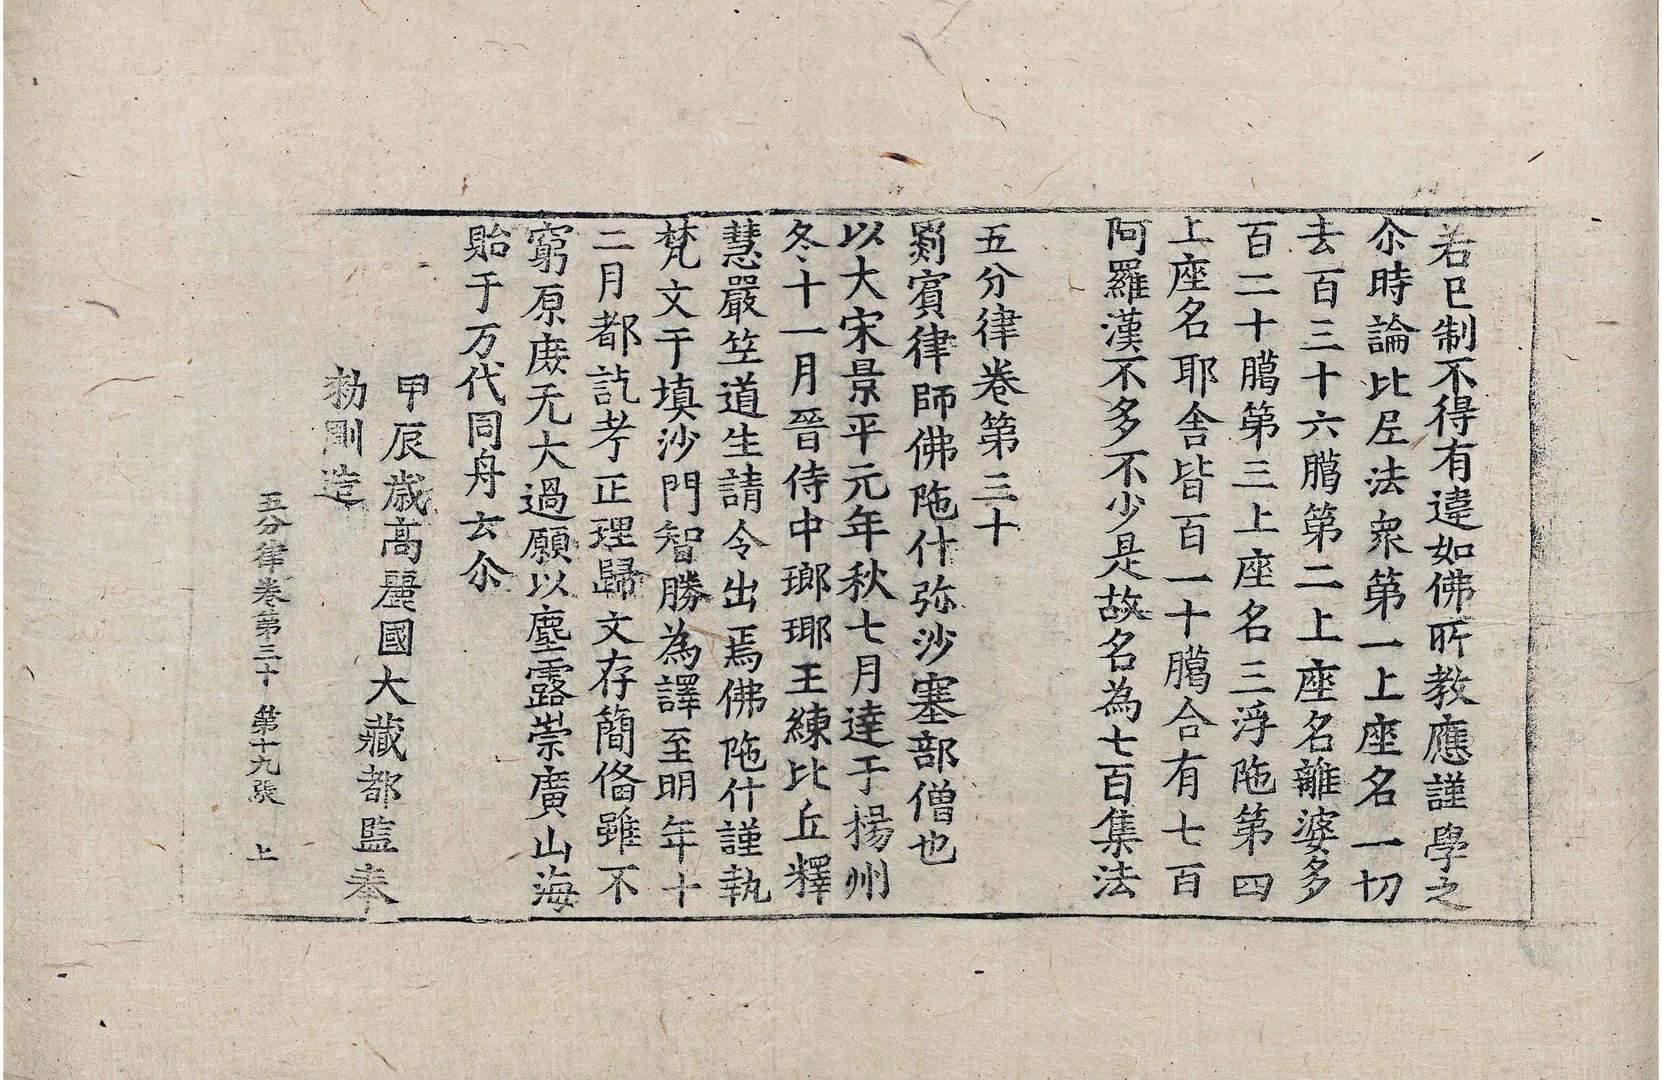 若已制不得有違如佛所教應謹學之
尒時論比丘法衆第一上座名一切
去百三十六臈第二上座名離婆多
百二十臈第三上座名三浮陁第四
上座名耶舍皆百一十臈合有七百
阿羅漢不多不少是故名為七百集法
五分律卷第三十
罽賓律師佛陁什弥沙塞部僧也
以大宋景平元年秋七月達于揚州
冬十一月晉侍中瑯瑘王練比丘釋
慧嚴笠道生請令出焉佛陁什謹執
梵文于填沙門智勝為譯至明年十
二月都訖考正理歸文存簡俻雖不
窮原庶无大過願以塵露崇廣山海
貽于万代同舟玄尒
甲辰歲高麗國大藏都監奉
勑彫造
五分律卷第三十 第十九張 上